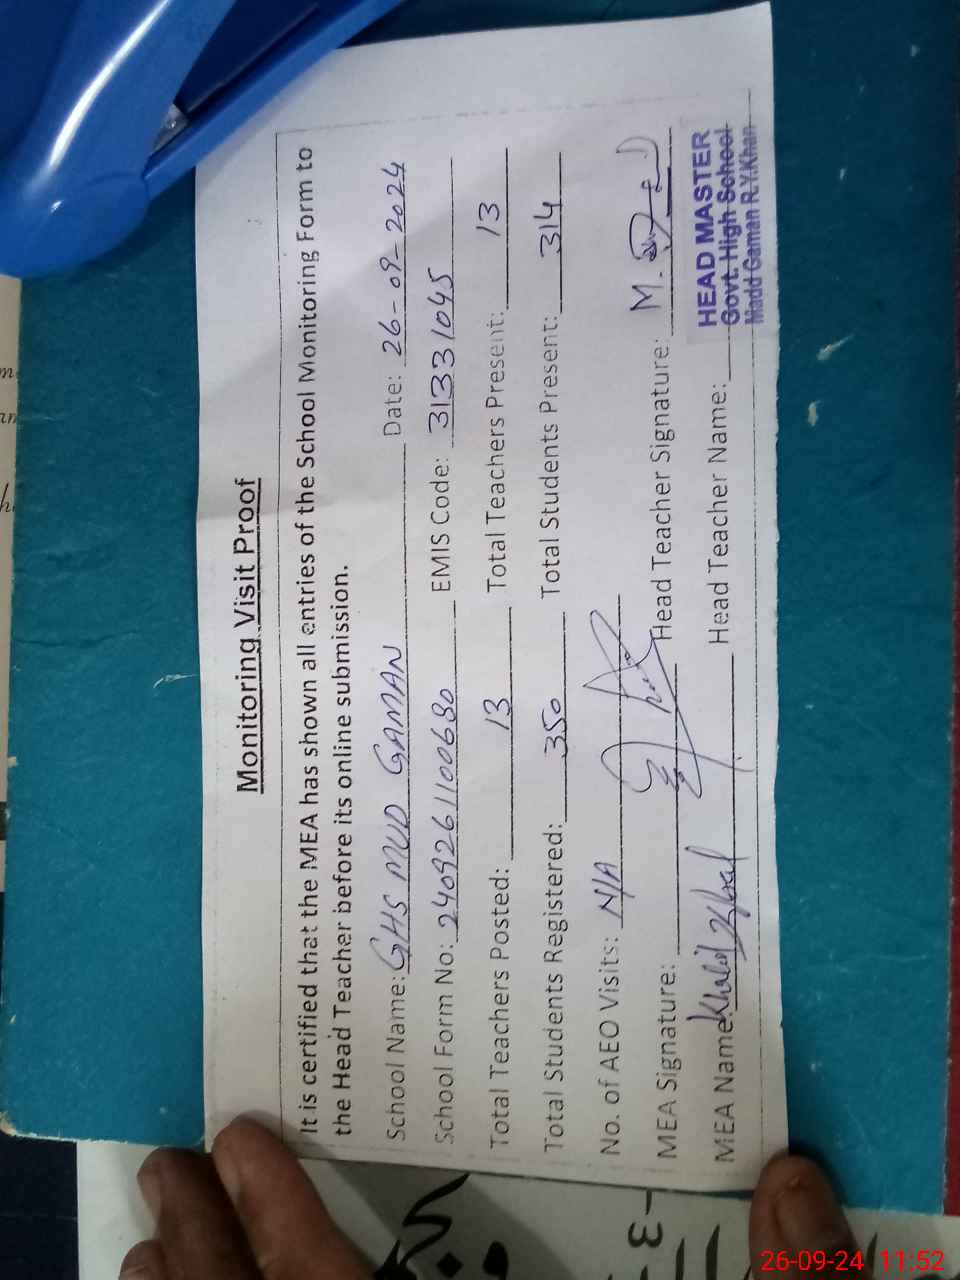 Monitoring Visit Proof
It is certified that the MEA has shown all entries of the School Monitoring Form to
the Head Teacher before its online submission.
School Name: GHS MUD GAMAN Date: 26-09-2024
School Form No: 2409261100680 EMIS Code: 31331045
Total Teachers Posted: 13 Total Teachers Present: 13
Total Students Registered: 350 Total Students Present: 314
No. of AEO Visits: N/A
MEA Signature: Head Teacher Signature: M.
MEA Name: Khalid Iqbal Head Teacher Name:
HEAD MASTER
Govt. High School
Madd Gaman R.Y.Khan
26-09-24 11:52